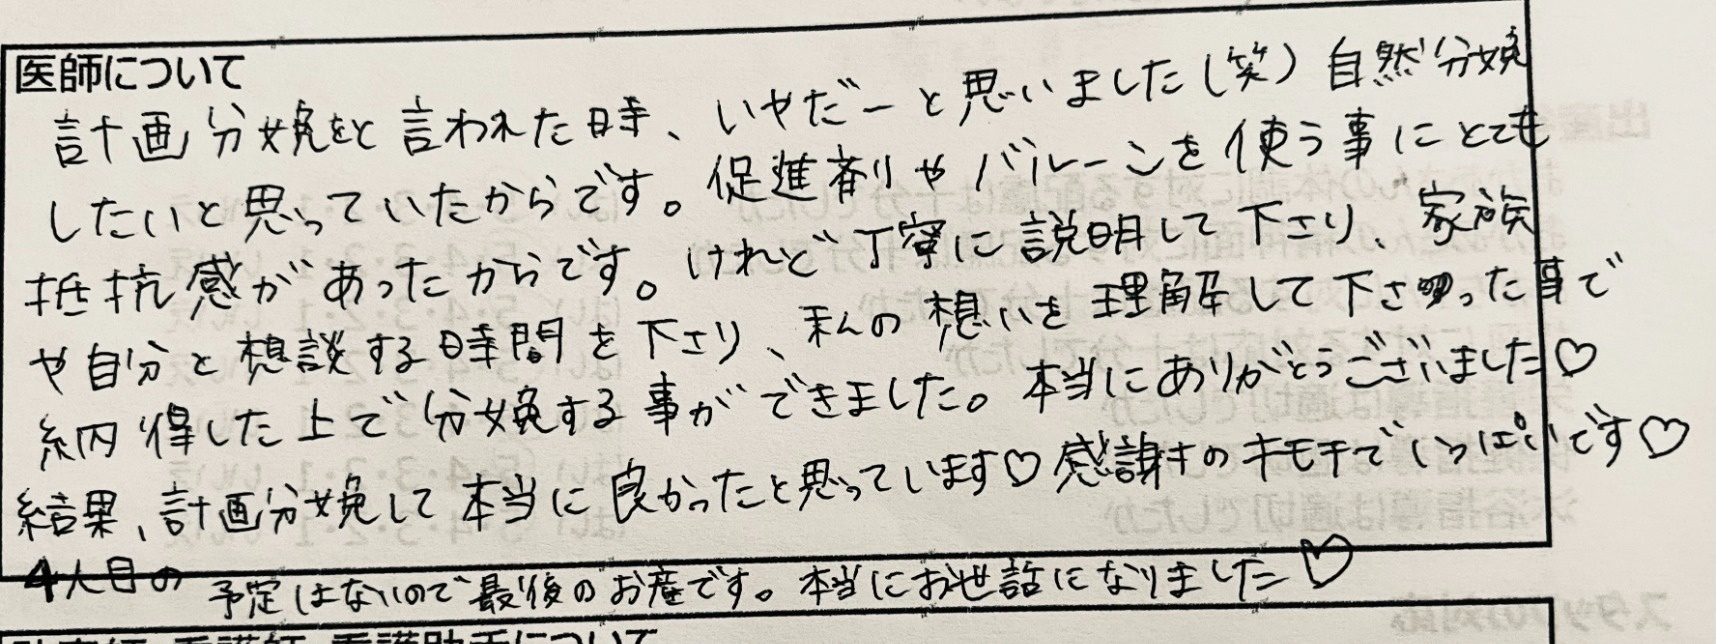 医師について
計画分娩をと言われた時、いやだーと思いました(笑)自然分娩
したいと思っていたからです。促進剤やバルーンを使う事にとても
抵抗感があったからです。けれど丁寧に説明して下さり、家族
や自分と想談する時間を下さり、私の想いを理解して下さった事で
納得した上で分娩する事ができました。本当にありがとうございました♡
結果、計画分娩して本当に良かったと思っています♡感謝のキモチでいっぱいです♡
4人目の予定はないので最後のお産です。本当にお世話になりました♡
助産師・看護師・看護助手について